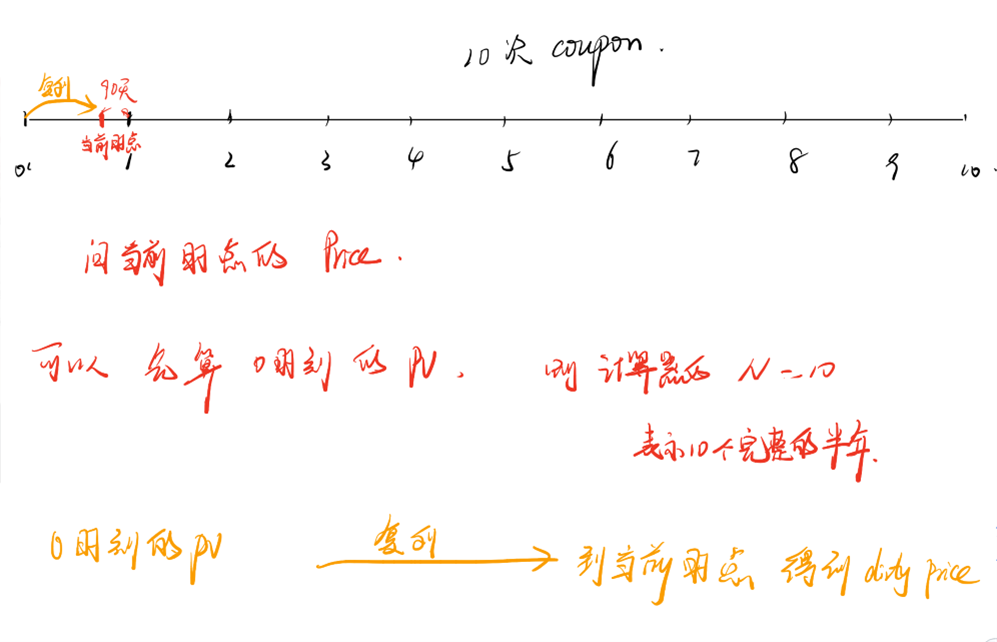 10次 coupon.
复利 90天
当前时点
0 1 2 3 4 5 6 7 8 9 10.
问当前时点的 Price.
可以 先算 0时刻 的 PV, 则 计算器的 N=10
表示10个完整的半年.
0时刻的PV 复利 到当前时点 得到 dirty price